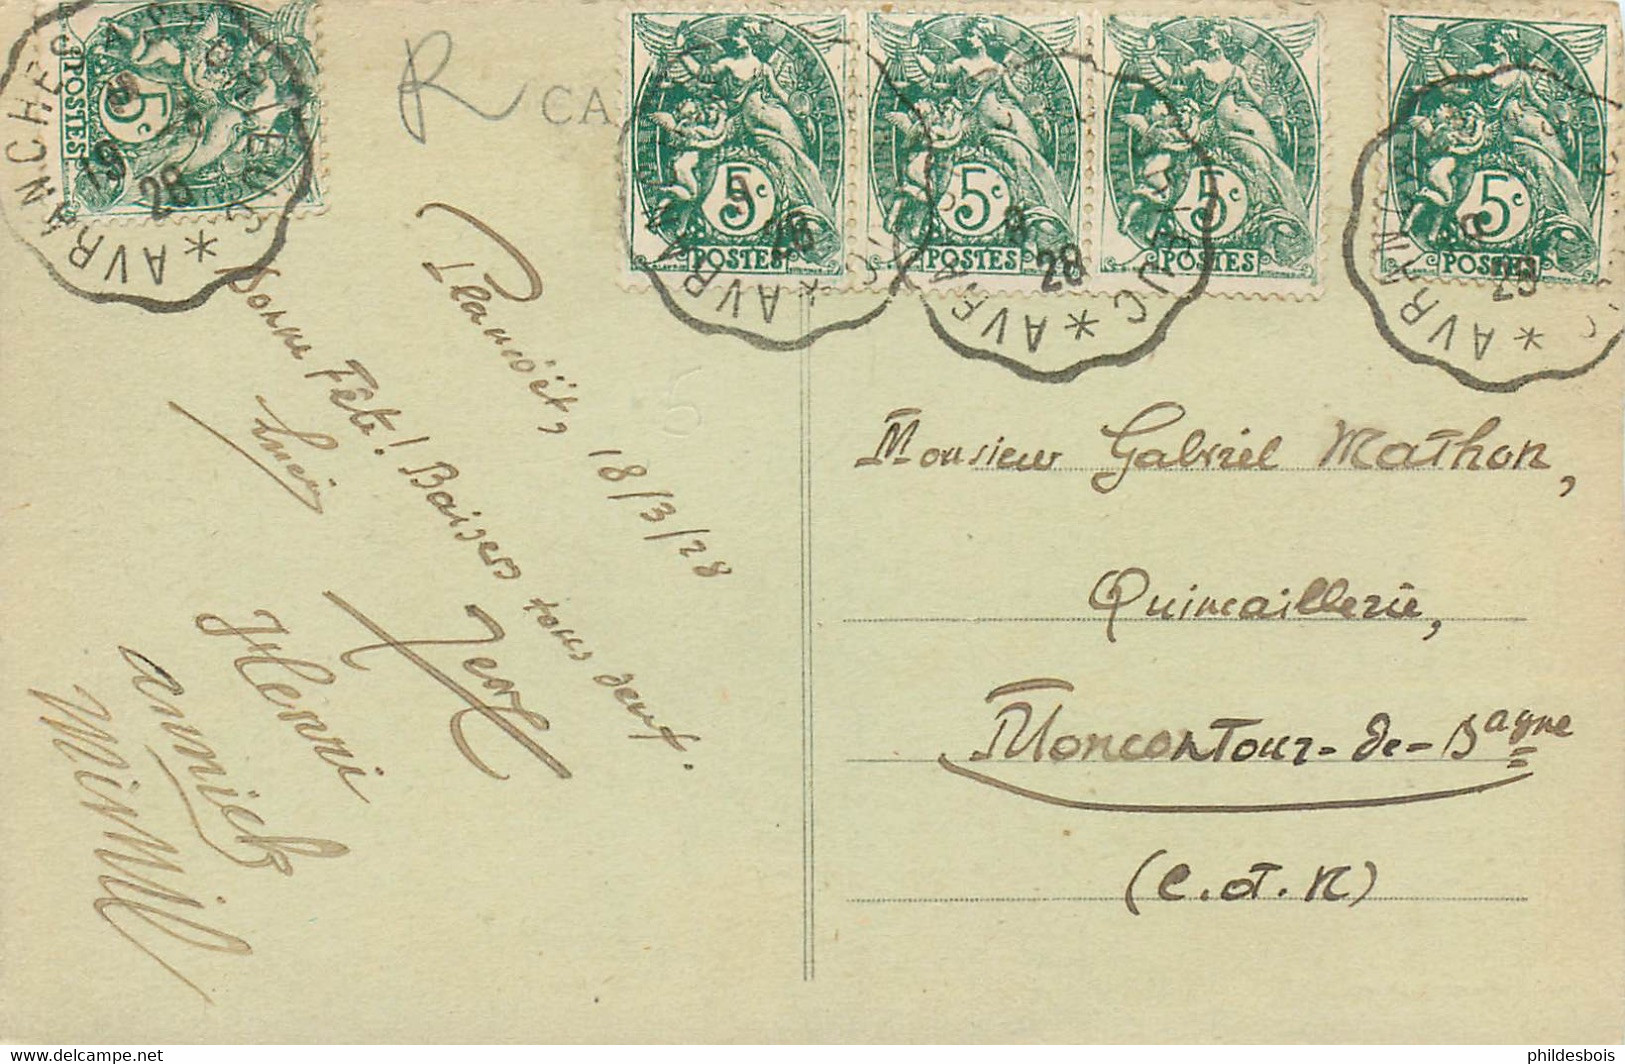 R
CA
5c
POSTES
5c
POSTES
5c
POSTES
5c
POSTES
5c
POSTES
AVRANCHES
19
28
AVRAN
9
28
AVR
28
AVRAN
28
Plancoët, 18/3/28
Bonne Fête! Baisers tous deux.
Henri
Annick
Monsieur Gabriel Mathon,
Quincaillerie,
Moncontour-de-Bagne
(C. ot. N)
phildesbois